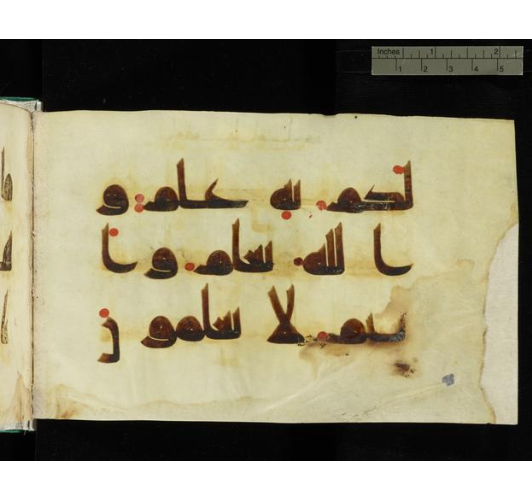 Inches 1 2
1 2 3 4 5
لكم به علم و
ا لله يعلم و ا
نتم لا تعلمون